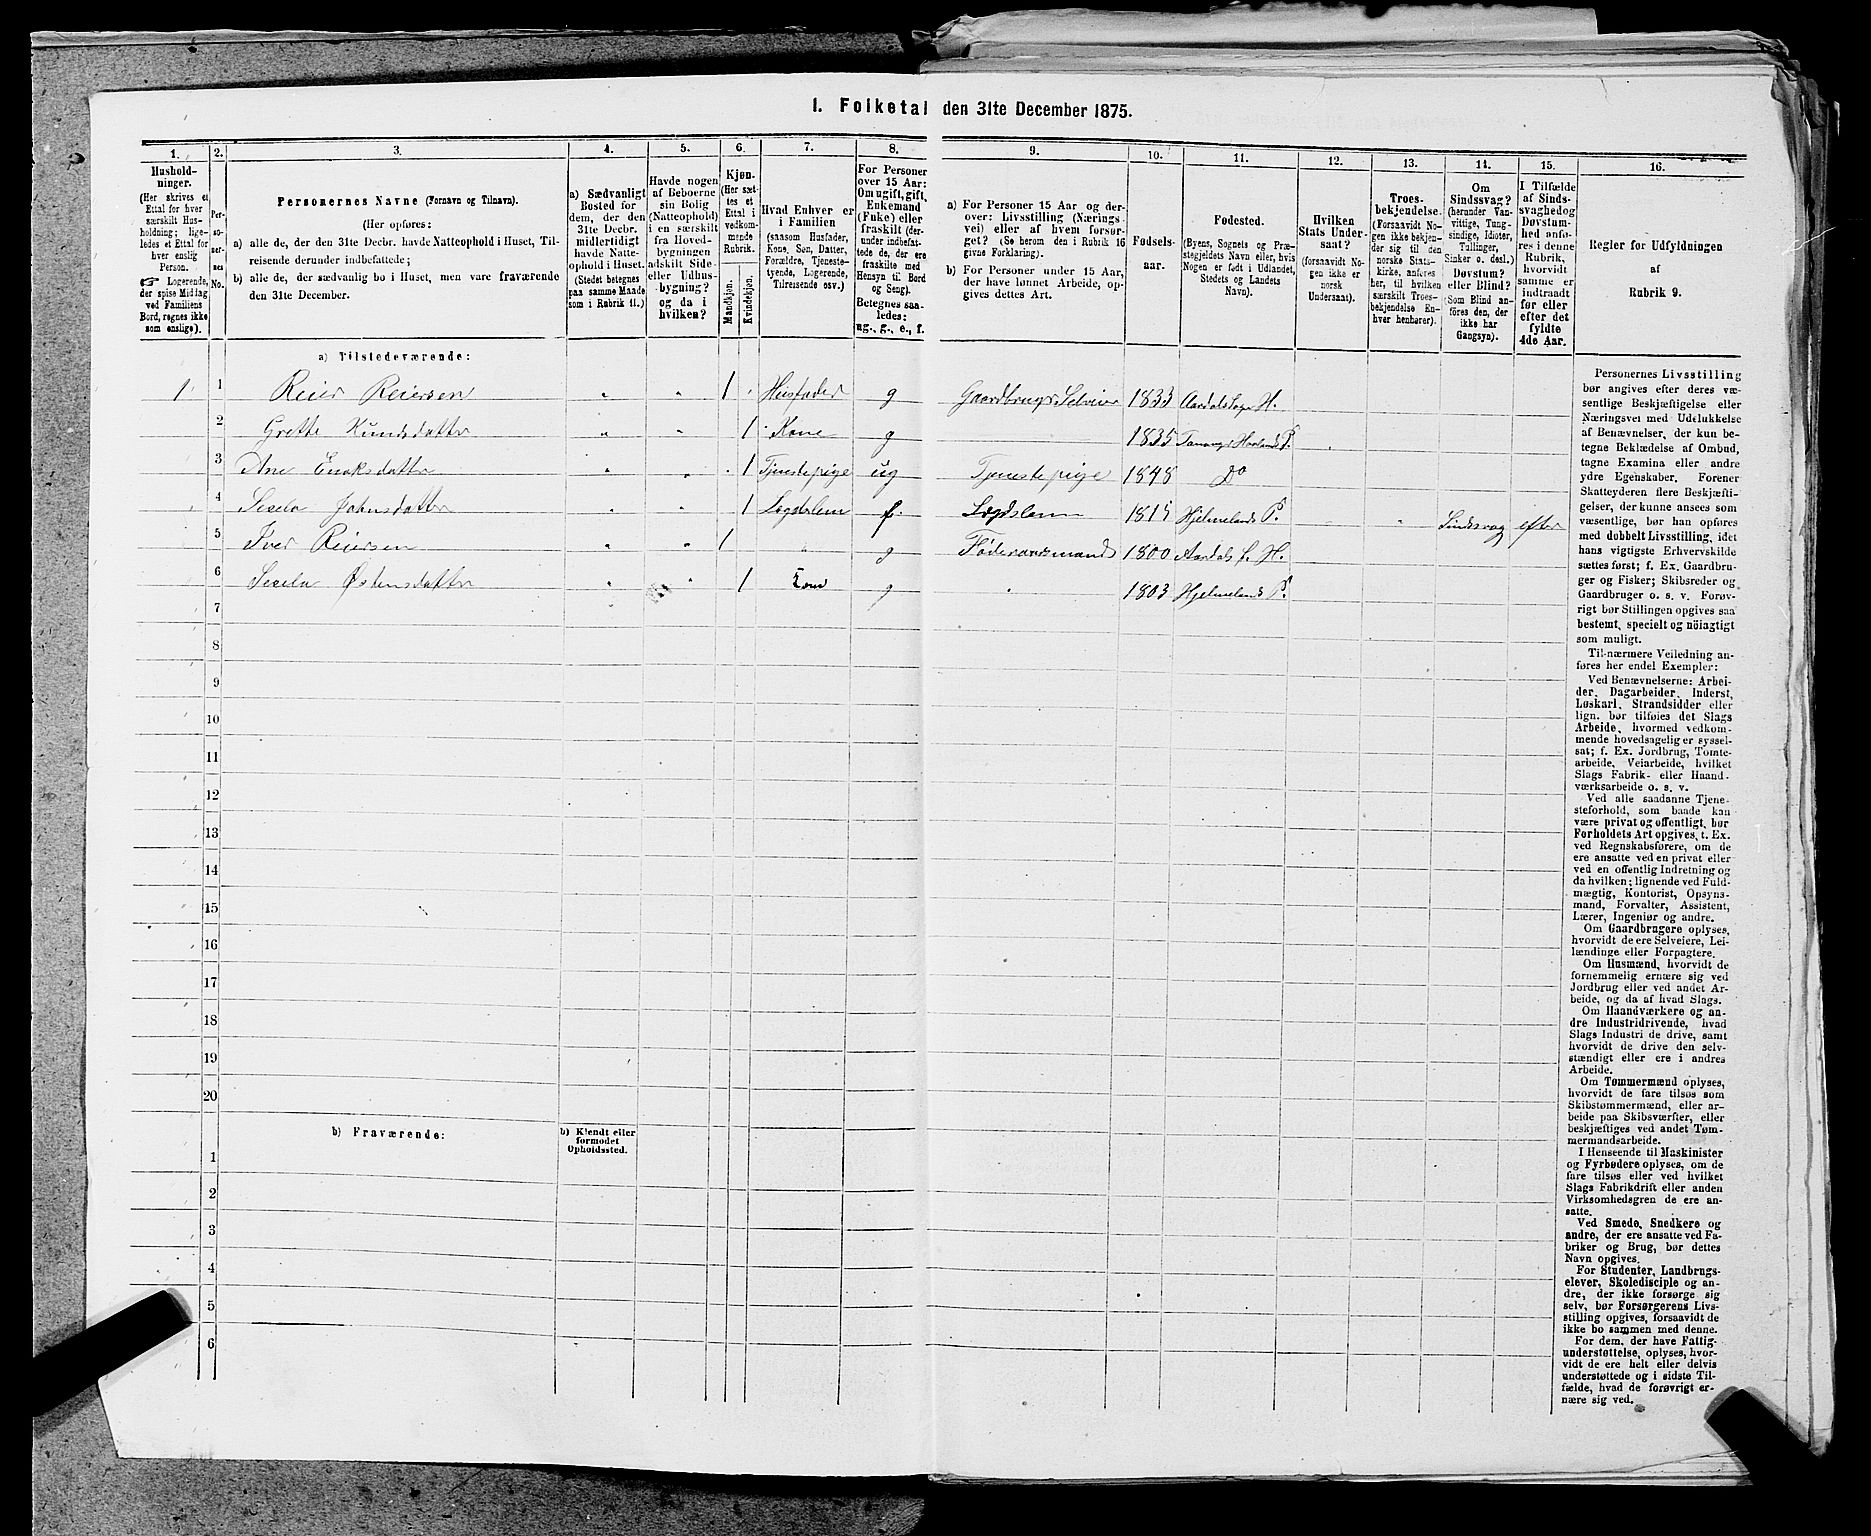 I. Folketal den 31te December 1875.
1. 2. 3. 4. 5. 6. 7. 8. 9. 10. 11. 12. 13. 14. 15. 16.
Hushold-
ninger.
(Her skrives et
Ettal for hver
særskilt Hus-
holdning; lige-
ledes et Ettal for
hver enslig
Person.
☞ Logerende,
der spise Middag
ved Familiens
Bord, regnes ikke
som enslige).
Per-
so-
ner-
nes
No.
Personernes Navne (Fornavn og Tilnavn).
(Her opføres:
a) alle de, der den 31te Decbr. havde Natteophold i Huset, Til-
reisende derunder indbefattede;
b) alle de, der sædvanlig bo i Huset, men vare fraværende
den 31te December.
a) Sædvanligt
Bosted for
dem, der den
31te Decbr.
midlertidigt
havde Natte-
ophold i Huset.
(Stedet betegnes
paa samme Maade
som i Rubrik 11.)
Havde nogen
af Beboerne
sin Bolig
(Natteophold)
i en særskilt
fra Hoved-
bygningen
adskilt Side-
eller Udhus-
bygning?
og da i
hvilken?
Kjøn.
(Her sæt-
tes et
Ettal i
vedkom-
mende
Rubrik.
Mandkjøn.
Kvindekjøn.
Hvad Enhver er
i Familien
(saasom Husfader,
Kone, Søn, Datter,
Forældre, Tjeneste-
tyende, Logerende,
Tilreisende osv.)
For Personer
over 15 Aar:
Om ugift, gift,
Enkemand
(Enke) eller
fraskilt (der-
under indbefat-
tede de, der ere
fraskilte med
Hensyn til Bord
og Seng).
Betegnes saa-
ledes:
ug., g., e., f.
a) For Personer 15 Aar og der-
over: Livsstilling (Nærings-
vei) eller af hvem forsør-
get? (Se herom den i Rubrik 16
givne Forklaring).
b) For Personer under 15 Aar,
der have lønnet Arbeide, op-
gives dettes Art.
Fødsels-
aar.
Fødested.
(Byens, Sognets og Præ-
stegjeldets Navn eller, hvis
Nogen er født i Udlandet,
Stedets og Landets
Navn).
Hvilken
Stats Under-
saat?
(forsaavidt No-
gen ikke er
norsk
Undersaat).
Troes-
bekjendelse.
(Forsaavidt No-
gen ikke bekjen-
der sig til den
norske Stats-
kirke, anføres
her, til hvilken
særskilt Troes-
bekjendelse En-
hver henhører).
Om
Sindssvag?
(herunder Van-
vittige, Tung-
sindige, Idioter,
Tullinger,
Sinker o. desl.)
Døvstum?
eller Blind?
(Som Blind an-
føres den, der
ikke har
Gangsyn).
I Tilfælde
af Sinds-
svaghed og
Døvstum-
hed anfø-
res i denne
Rubrik,
hvorvidt
samme er
indtraadt
før eller
efter det
fyldte
4de Aar.
Regler for Udfyldningen
af
Rubrik 9.
a) Tilstedeværende:
1 1 Reier Reiersen " " 1 Husfader g Gaardbruger Selveier 1833 H.
2 Grette Knudsdatter " " 1 Kone g 1835 P.
3 Ane " " 1 Tjenestepige ug Tjenestepige 1848 Do
4 Sesela Johnsdatter " " 1 Lægdslem f. Lægdslem 1815 Hjelmelands P. Sindssvag efter
5 Iver Reiersen " " 1 " g Føderaadsmand 1800 Aardal H.
6 Sesela Østensdatter " " 1 Kone g 1803 Hjelmelands P.
7
8
9
10
11
12
13
14
15
16
17
18
19
20
b) Fraværende:
b) Kjendt eller
formodet
Opholdssted.
1
2
3
4
5
6
Personernes Livsstilling
bør angives efter deres væ-
sentlige Beskjæftigelse eller
Næringsvei med Udelukkelse
af Benævnelser, der kun be-
tegne Beklædelse af Ombud,
tagne Examina eller andre
ydre Egenskaber. Forener
Skatteyderen flere Beskjæfti-
gelser, der kunne ansees som
væsentlige, bør han opføres
med dobbelt Livsstilling, idet
hans vigtigste Erhvervskilde
sættes først; f. Ex. Gaardbru-
ger og Fisker; Skibsreder og
Gaardbruger o. s. v. Forøv-
rigt bør Stillingen opgives saa
bestemt, specielt og nöiagtigt
som muligt.
Til nærmere Veiledning an-
føres her endel Exempler:
Ved Benævnelserne: Arbei-
der, Dagarbeider, Inderst,
Løskarl, Strandsidder eller
lign. bør tilføies det Slags
Arbeide, hvormed vedkom-
mende hovedsagelig er syssel-
sat; f. Ex. Jordbrug, Tomte-
arbeide, Veiarbeide, hvilket
Slags Fabrik- eller Haand-
værksarbeide o. s. v.
Ved alle saadanne Tjene-
steforhold, som baade kan
være privat og offentligt, bør
Forholdets Art opgives, t. Ex.
ved Regnskabsførere, om de
ere ansatte ved en privat eller
ved en offentlig Indretning og
da hvilken; lignende ved Fuld-
mægtig, Kontorist, Opsyns-
mand, Forvalter, Assistent,
Lærer, Ingeniør og andre.
Om Gaardbrugere oplyses,
hvorvidt de ere Selveiere, Lei-
lændinge eller Forpagtere.
Om Husmænd, hvorvidt de
fornemmelig ernære sig ved
Jordbrug eller ved andet Ar-
beide, og da af hvad Slags.
Om Haandværkere og an-
dre Industridrivende, hvad
Slags Industri de drive, samt
hvorvidt de drive den selv-
stændigt eller ere i andres
Arbeide.
Om Tømmermænd oplyses,
hvorvidt de fare tilsøs som
Skibstømmermænd, eller ar-
beide paa Skibsværfter, eller
beskjæftiges ved andet Tøm-
mermandsarbeide.
I Henseende til Maskinister
og Fyrbødere oplyses, om de
fare tilsøs eller ved hvilket
Slags Fabrikdrift eller anden
Virksomhedsgren de ere an-
satte.
Ved Smede, Snedkere og
andre, der ere ansatte ved Fa-
briker og Brug, bør dettes
Navn opgives.
For Studenter, Landbrugs-
elever, Skoledisciple og an-
dre, der ikke forsørge sig
selv, bør Forsørgerens Livs-
stilling opgives, forsaavidt de
ikke bo sammen med denne.
For dem, der have Fattig-
understøttelse, oplyses, hvor-
vidt de ere helt eller delvis
understøttede og i sidste Til-
fælde, hvad de forøvrigt er-
nære sig ved.